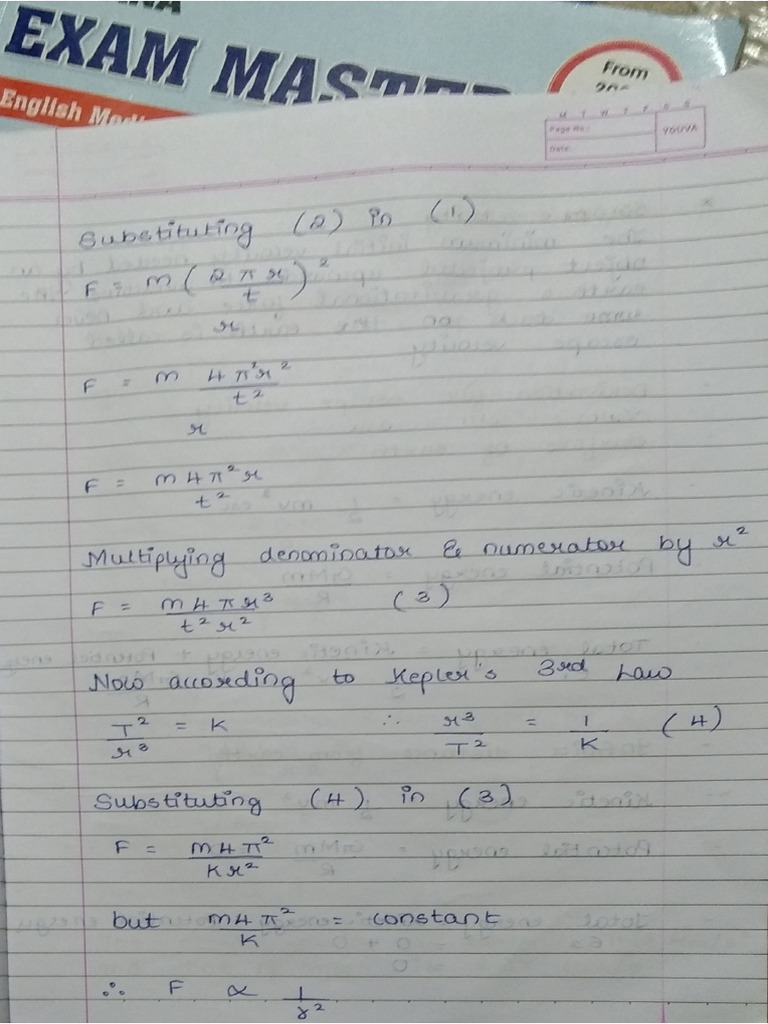 EXAM MASTER
English Medi
From
M T W T F S S
Page No.:
YOUVA
Date:
Substituting (2) in (1)
F = m (2πr/t)²
r
F = m 4π²r²/t²
r
F = m4π²r/t²
Multiplying denominator & numerator by r²
F = m4πr³/t²r² (3)
Now according to Kepler's 3rd Law
T²/r³ = K ∴ r³/T² = 1/K (4)
Substituting (4) in (3)
F = m4π²/Kr²
but m4π²/K = constant
∴ F ∝ 1/r²